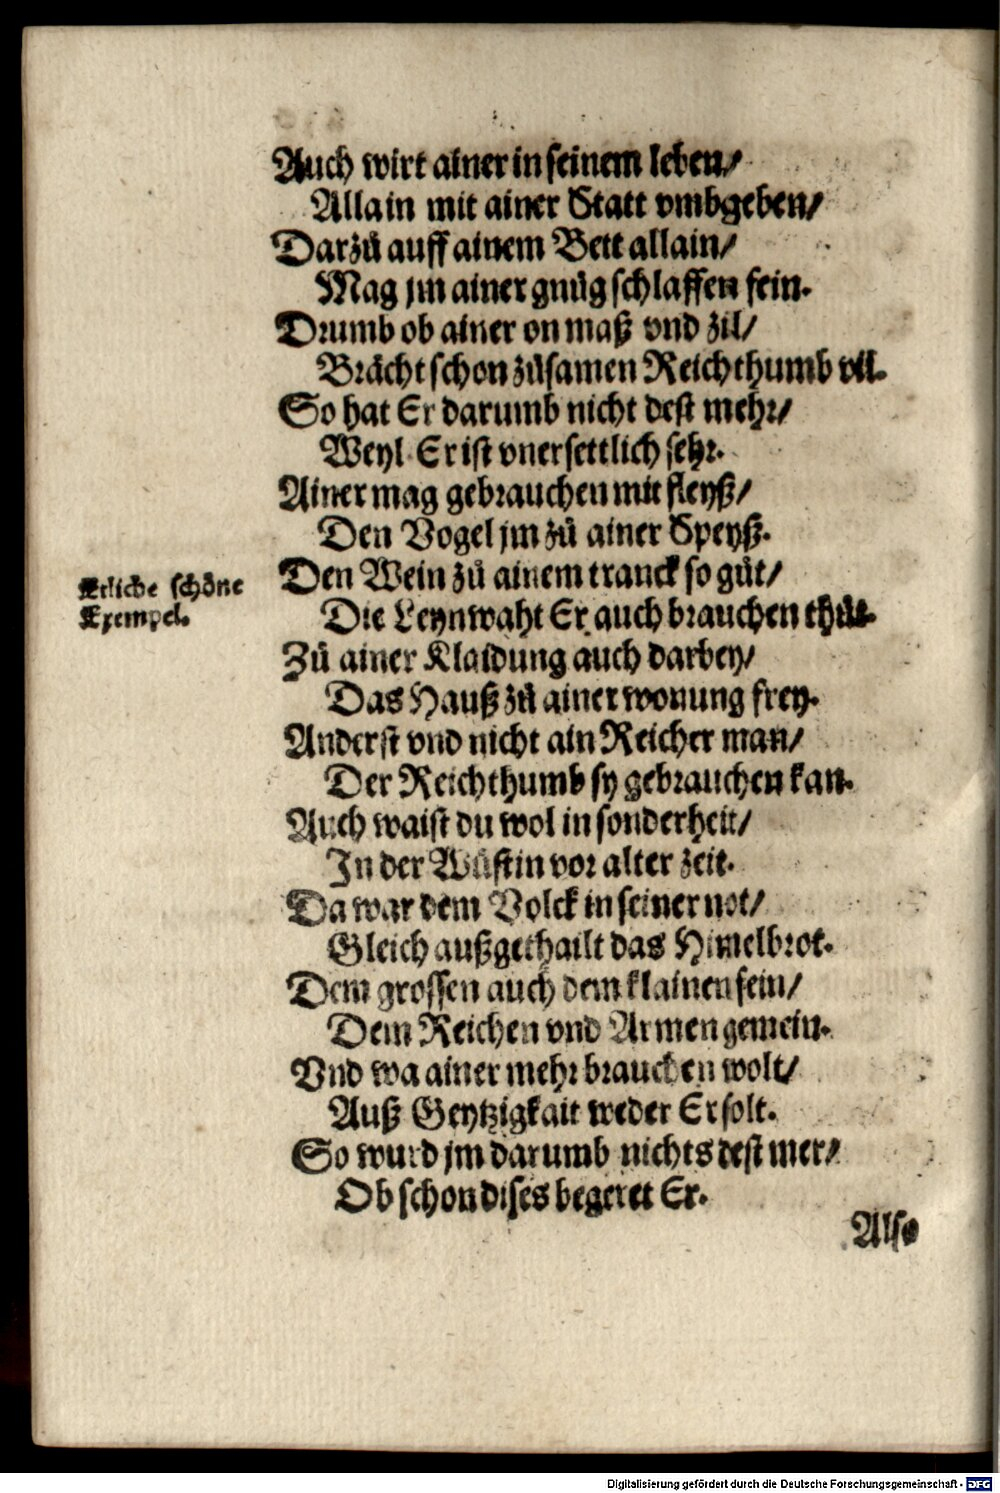 Auch wirt ainer in seinem leben/
Allain mit ainer Statt vmbgeben/
Darzů auff ainem Bett allain/
Mag jm ainer gnůg schlaffen fein.
Drumb ob ainer on maß vnd zil/
Brächt schon zůsamen Reichthumb vil.
So hat Er darumb nicht dest mehr/
Weyl Er ist vnersettlich sehr.
Ainer mag gebrauchen mit fleyß/
Den Vogel jm zů ainer Speyß.
Etliche schöne
Exempel.
Den Wein zů ainem tranck so gůt/
Die Leynwaht Er auch brauchen thůt.
Zů ainer Klaidung auch darbey/
Das Hauß zů ainer wonung frey.
Anderst vnd nicht ain Reicher man/
Der Reichthumb sy gebrauchen kan.
Auch waist du wol in sonderheit/
In der Wůstin vor alter zeit.
Da war dem Volck in seiner not/
Gleich außgethailt das Himelbrot.
Dem grossen auch dem klainen fein/
Dem Reichen vnd Armen gemein.
Vnd wa ainer mehr brauchen wolt/
Auß Geytzigkait weder Er solt.
So wurd jm darumb nichts dest mer/
Ob schon dises begeret Er.
Also
Digitalisierung gefördert durch die Deutsche Forschungsgemeinschaft - DFG